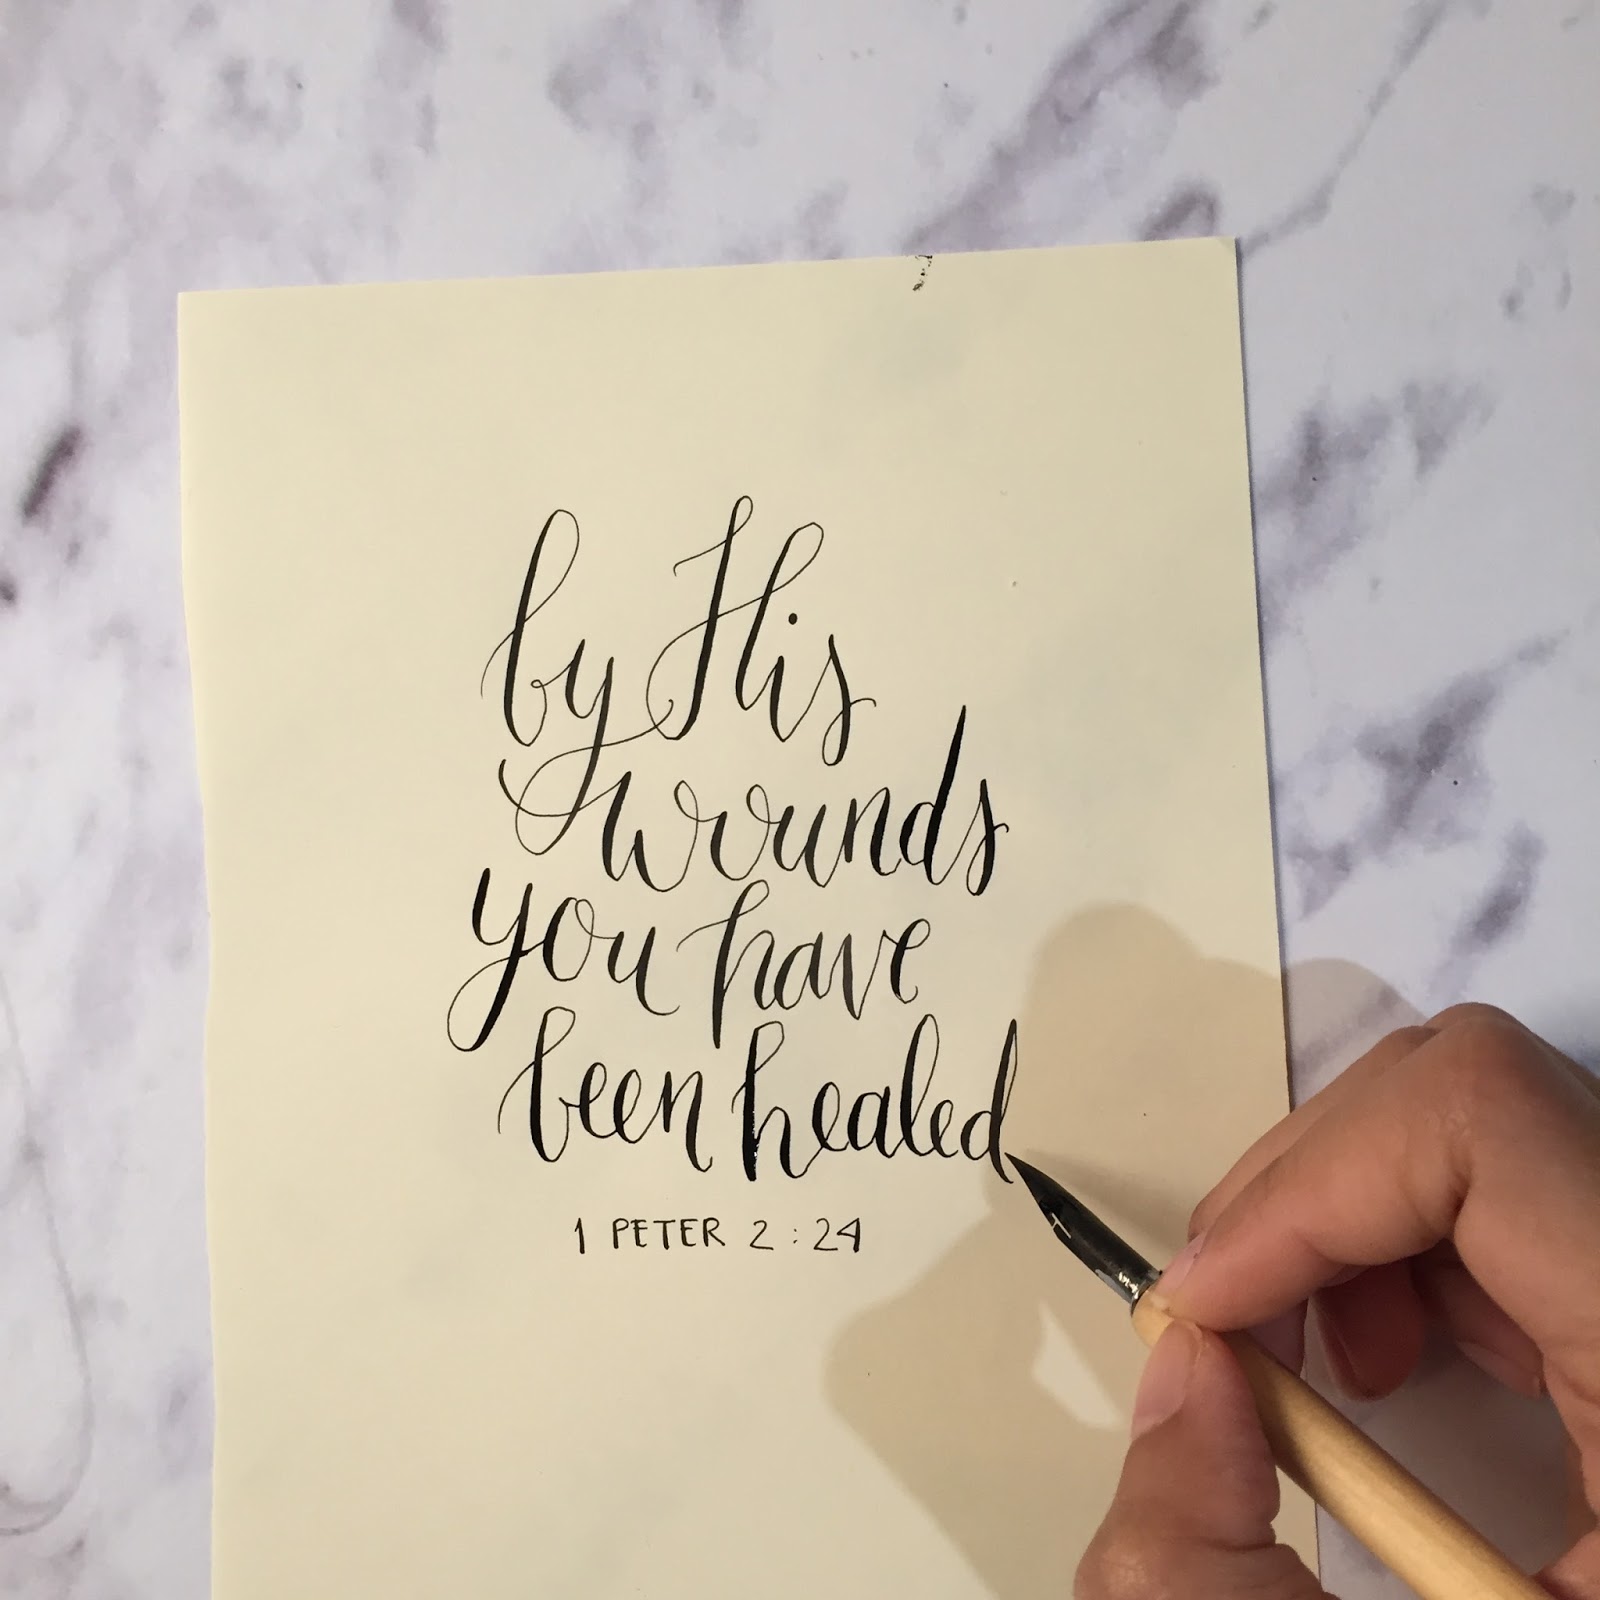 by His
wounds
you have
been healed
1 PETER 2:24